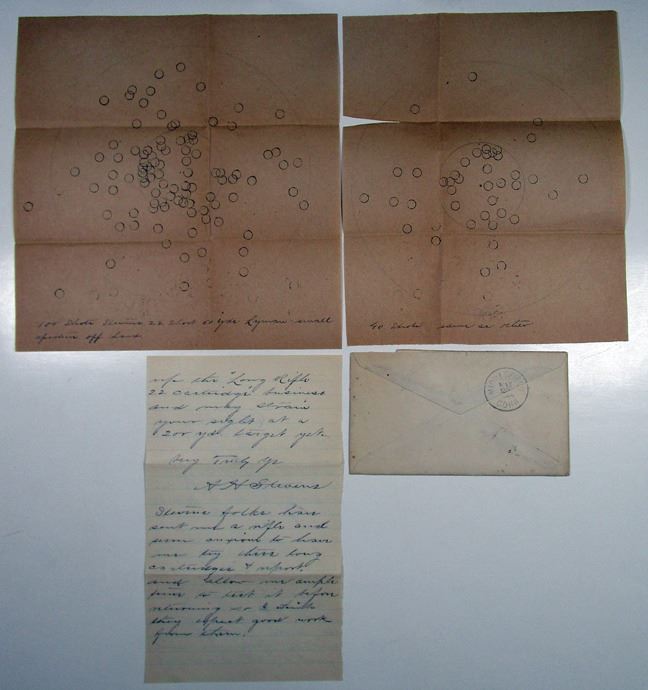 100 Shots Stevens 22 Short 50 yds Lyman small
off hand
40 Shots, same as other
up the "Long Rifle
22 cartridge" business
and may strain
your sight at a
200 yd. target yet.
Very Truly Yrs
A H Stevens
Stevens folks have
sent me a rifle and
seem anxious to have
me try their long
cartridges & report.
and allow me ample
time to test it before
returning so I think
they expect good work
from them.
CONN.